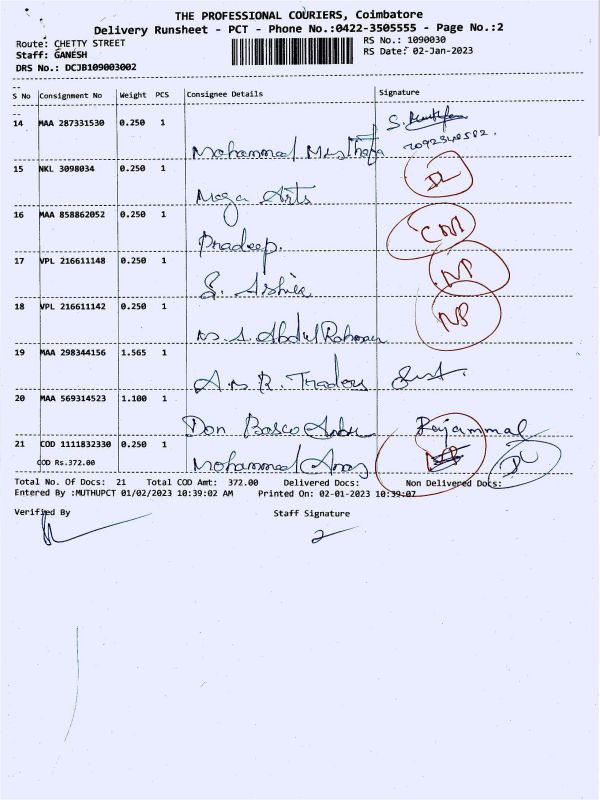 THE PROFESSIONAL COURIERS, Coimbatore
Delivery Runsheet - PCT - Phone No.:0422-3505555 - Page No.:2
Route: CHETTY STREET
RS No.: 1090030
Staff: GANESH
RS Date: 02-Jan-2023
DRS No.: DCJB109003002
S No Consignment No Weight PCS Consignee Details Signature
14 MAA 287331530 0.250 1
Mohammad Musthafa
15 NKL 3098034 0.250 1
Mega Arts
DL
16 MAA 858862052 0.250 1
Pradeep.
17 VPL 216611148 0.250 1
NP
18 VPL 216611142 0.250 1
M. S. Abdul Rahman
NP
19 MAA 298344156 1.565 1
A.M.R. Traders
20 MAA 569314523 1.100 1
Don Bosco Anbu Rajammal
21 COD 1111832330 0.250 1
COD Rs.372.00
Mohammed Anas DL
Total No. Of Docs: 21 Total COD Amt: 372.00 Delivered Docs: Non Delivered Docs:
Entered By :MUTHUPCT 01/02/2023 10:39:02 AM Printed On: 02-01-2023 10:39:07
Verified By Staff Signature